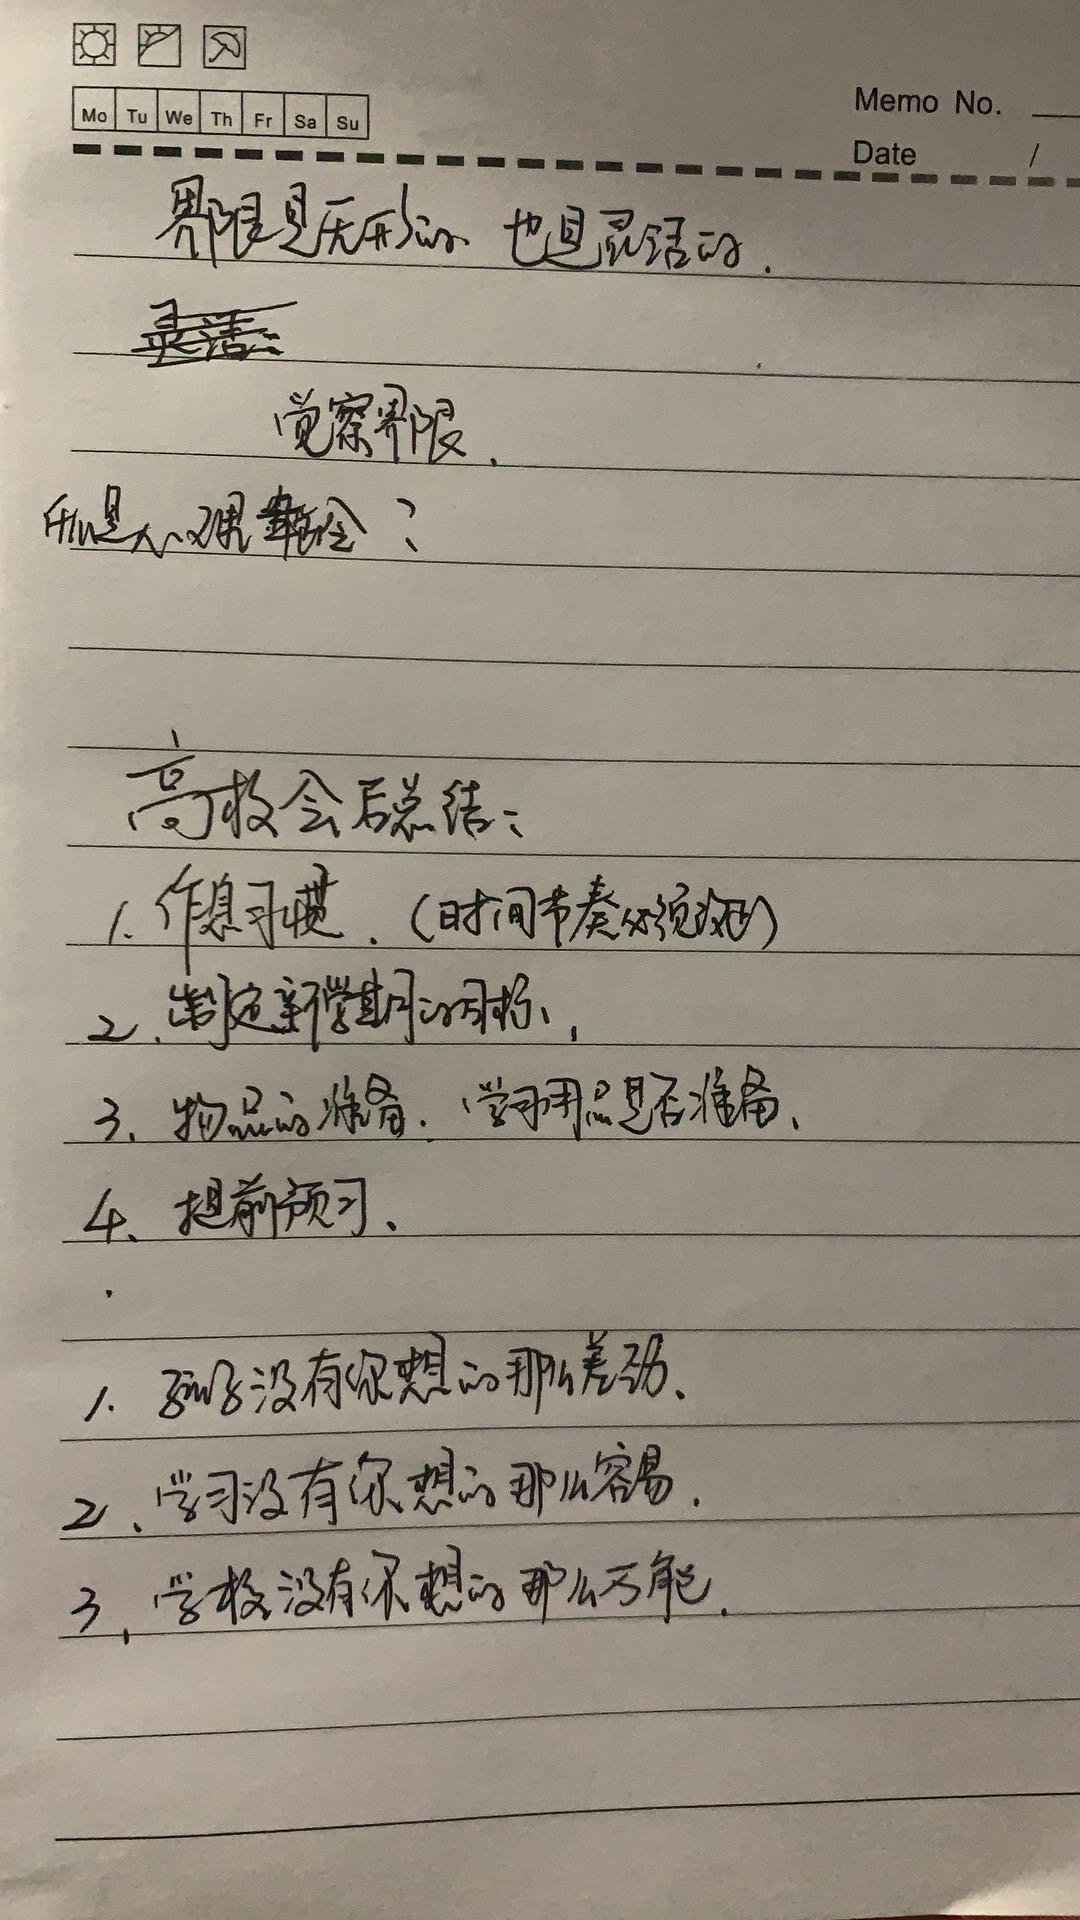 Mo Tu We Th Fr Sa Su
Memo No.
Date /
界限是无形的 也是灵活的.
灵活:
觉察界限.
高校会后总结:
1. 作息习惯. (时间节奏必须)
2. 制定新学期的目标,
3、物品的准备. 学习用品是否准备、
4、提前预习、
1. 孩子没有你想的那么差劲、
2、学习没有你想的那么容易.
3、学校没有你想的那么万能.